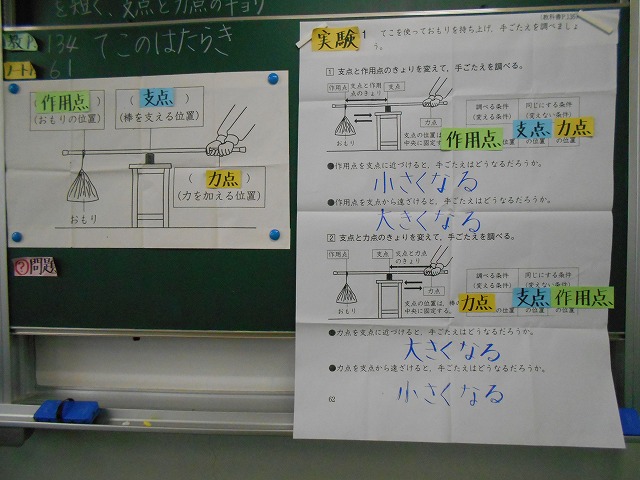 を短く、支点と力点のキョリ
134 てこのはたらき
ノート
61
(作用点)
(おもりの位置)
(支点)
(棒を支える位置)
(力点)
(力を加える位置)
おもり
問題
実験1 てこを使っておもりを持ち上げ、手ごたえを調べましょう。
1 支点と作用点のきょりを変えて、手ごたえを調べる。
作用点 支点と作用点のきょり 支点
力点
支点の位置は、
中央に固定する
おもり
調べる条件
(変える条件)
同じにする条件
(変えない条件)
作用点 支点 力点
の位置 の位置
●作用点を支点に近づけると、手ごたえはどうなるだろうか。
小さくなる
●作用点を支点から遠ざけると、手ごたえはどうなるだろうか。
大きくなる
2 支点と力点のきょりを変えて、手ごたえを調べる。
作用点 支点 支点と力点のきょり
力点
支点の位置は、棒の
中央に固定する。
おもり
調べる条件
(変える条件)
同じにする条件
(変えない条件)
力点 支点 作用点
の位置 の位置 の位置
●力点を支点に近づけると、手ごたえはどうなるだろうか。
大きくなる
●力点を支点から遠ざけると、手ごたえはどうなるだろうか。
小さくなる
62